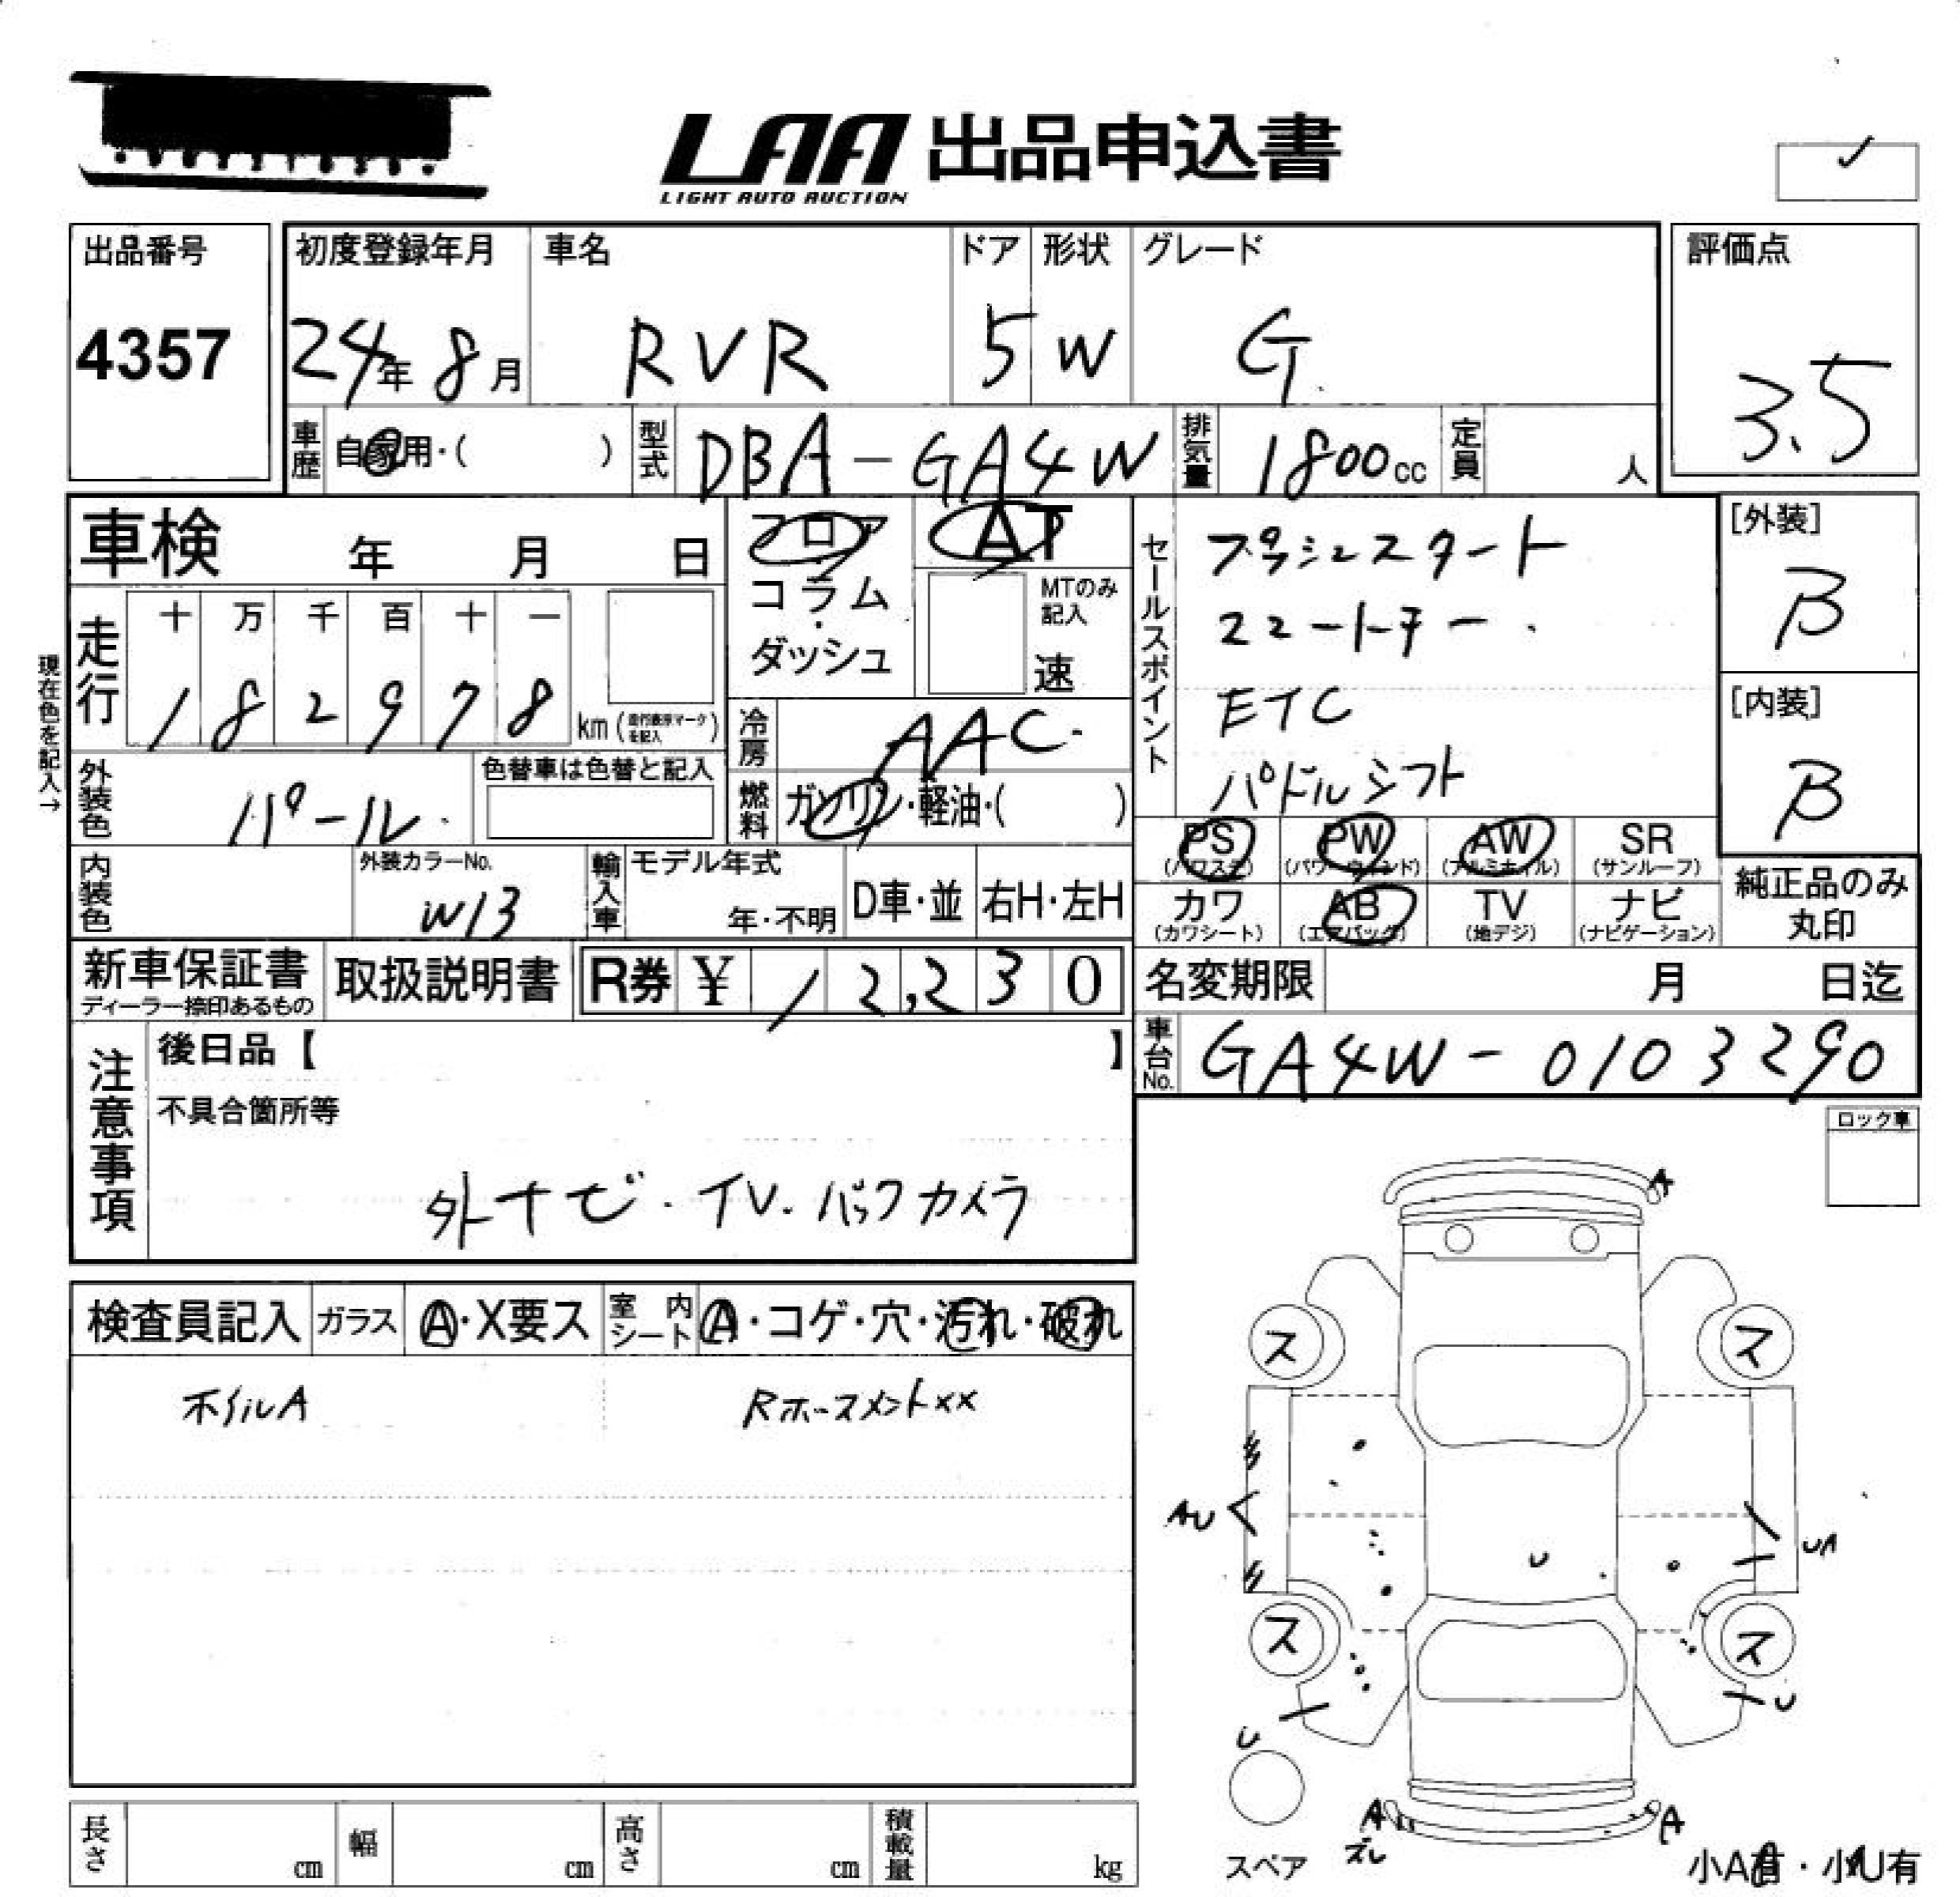 LAA 出品申込書
LIGHT AUTO AUCTION
出品番号
4357
初度登録年月
24年 8月
車名
RVR
ドア
5
形状
W
グレード
G
評価点
3.5
車歴 自家用・( )
型式 DBA-GA4W
排気量 1800cc
定員 人
車検 年 月 日
フロア
コラム
ダッシュ
AT
MTのみ
記入
速
セールスポイント
プッシュスタート
スマートキー
ETC
パドルシフト
[外装]
B
[内装]
B
現在色を記入→
走行
十 万 千 百 十 一
1 8 2 9 7 8 km (走行表示マークを記入)
冷房 AAC
外装色 パール
色替車は色替と記入
燃料 ガソリン・軽油・( )
PS (パワステ)
PW (パワーウィンド)
AW (アルミホイル)
SR (サンルーフ)
カワ (カワシート)
AB (エアバッグ)
TV (地デジ)
ナビ (ナビゲーション)
純正品のみ
丸印
内装色
外装カラーNo.
W13
輸入車
モデル年式
年・不明
D車・並 右H・左H
新車保証書
ディーラー捺印あるもの
取扱説明書
R券 ¥ 12,230
名変期限 月 日迄
車台No. GA4W-0103290
注意事項
後日品【 】
不具合箇所等
外ナビ・TV・バックカメラ
ロック車
検査員記入 ガラス A・X要ス 室内シート A・コゲ・穴・汚れ・破れ
ホイルA
Rホースメント××
A
ス ス
AU
U
UA
ス ス
U
U
A
A
ズレ
スペア
小A有・小U有
長さ cm 幅 cm 高さ cm 積載量 kg